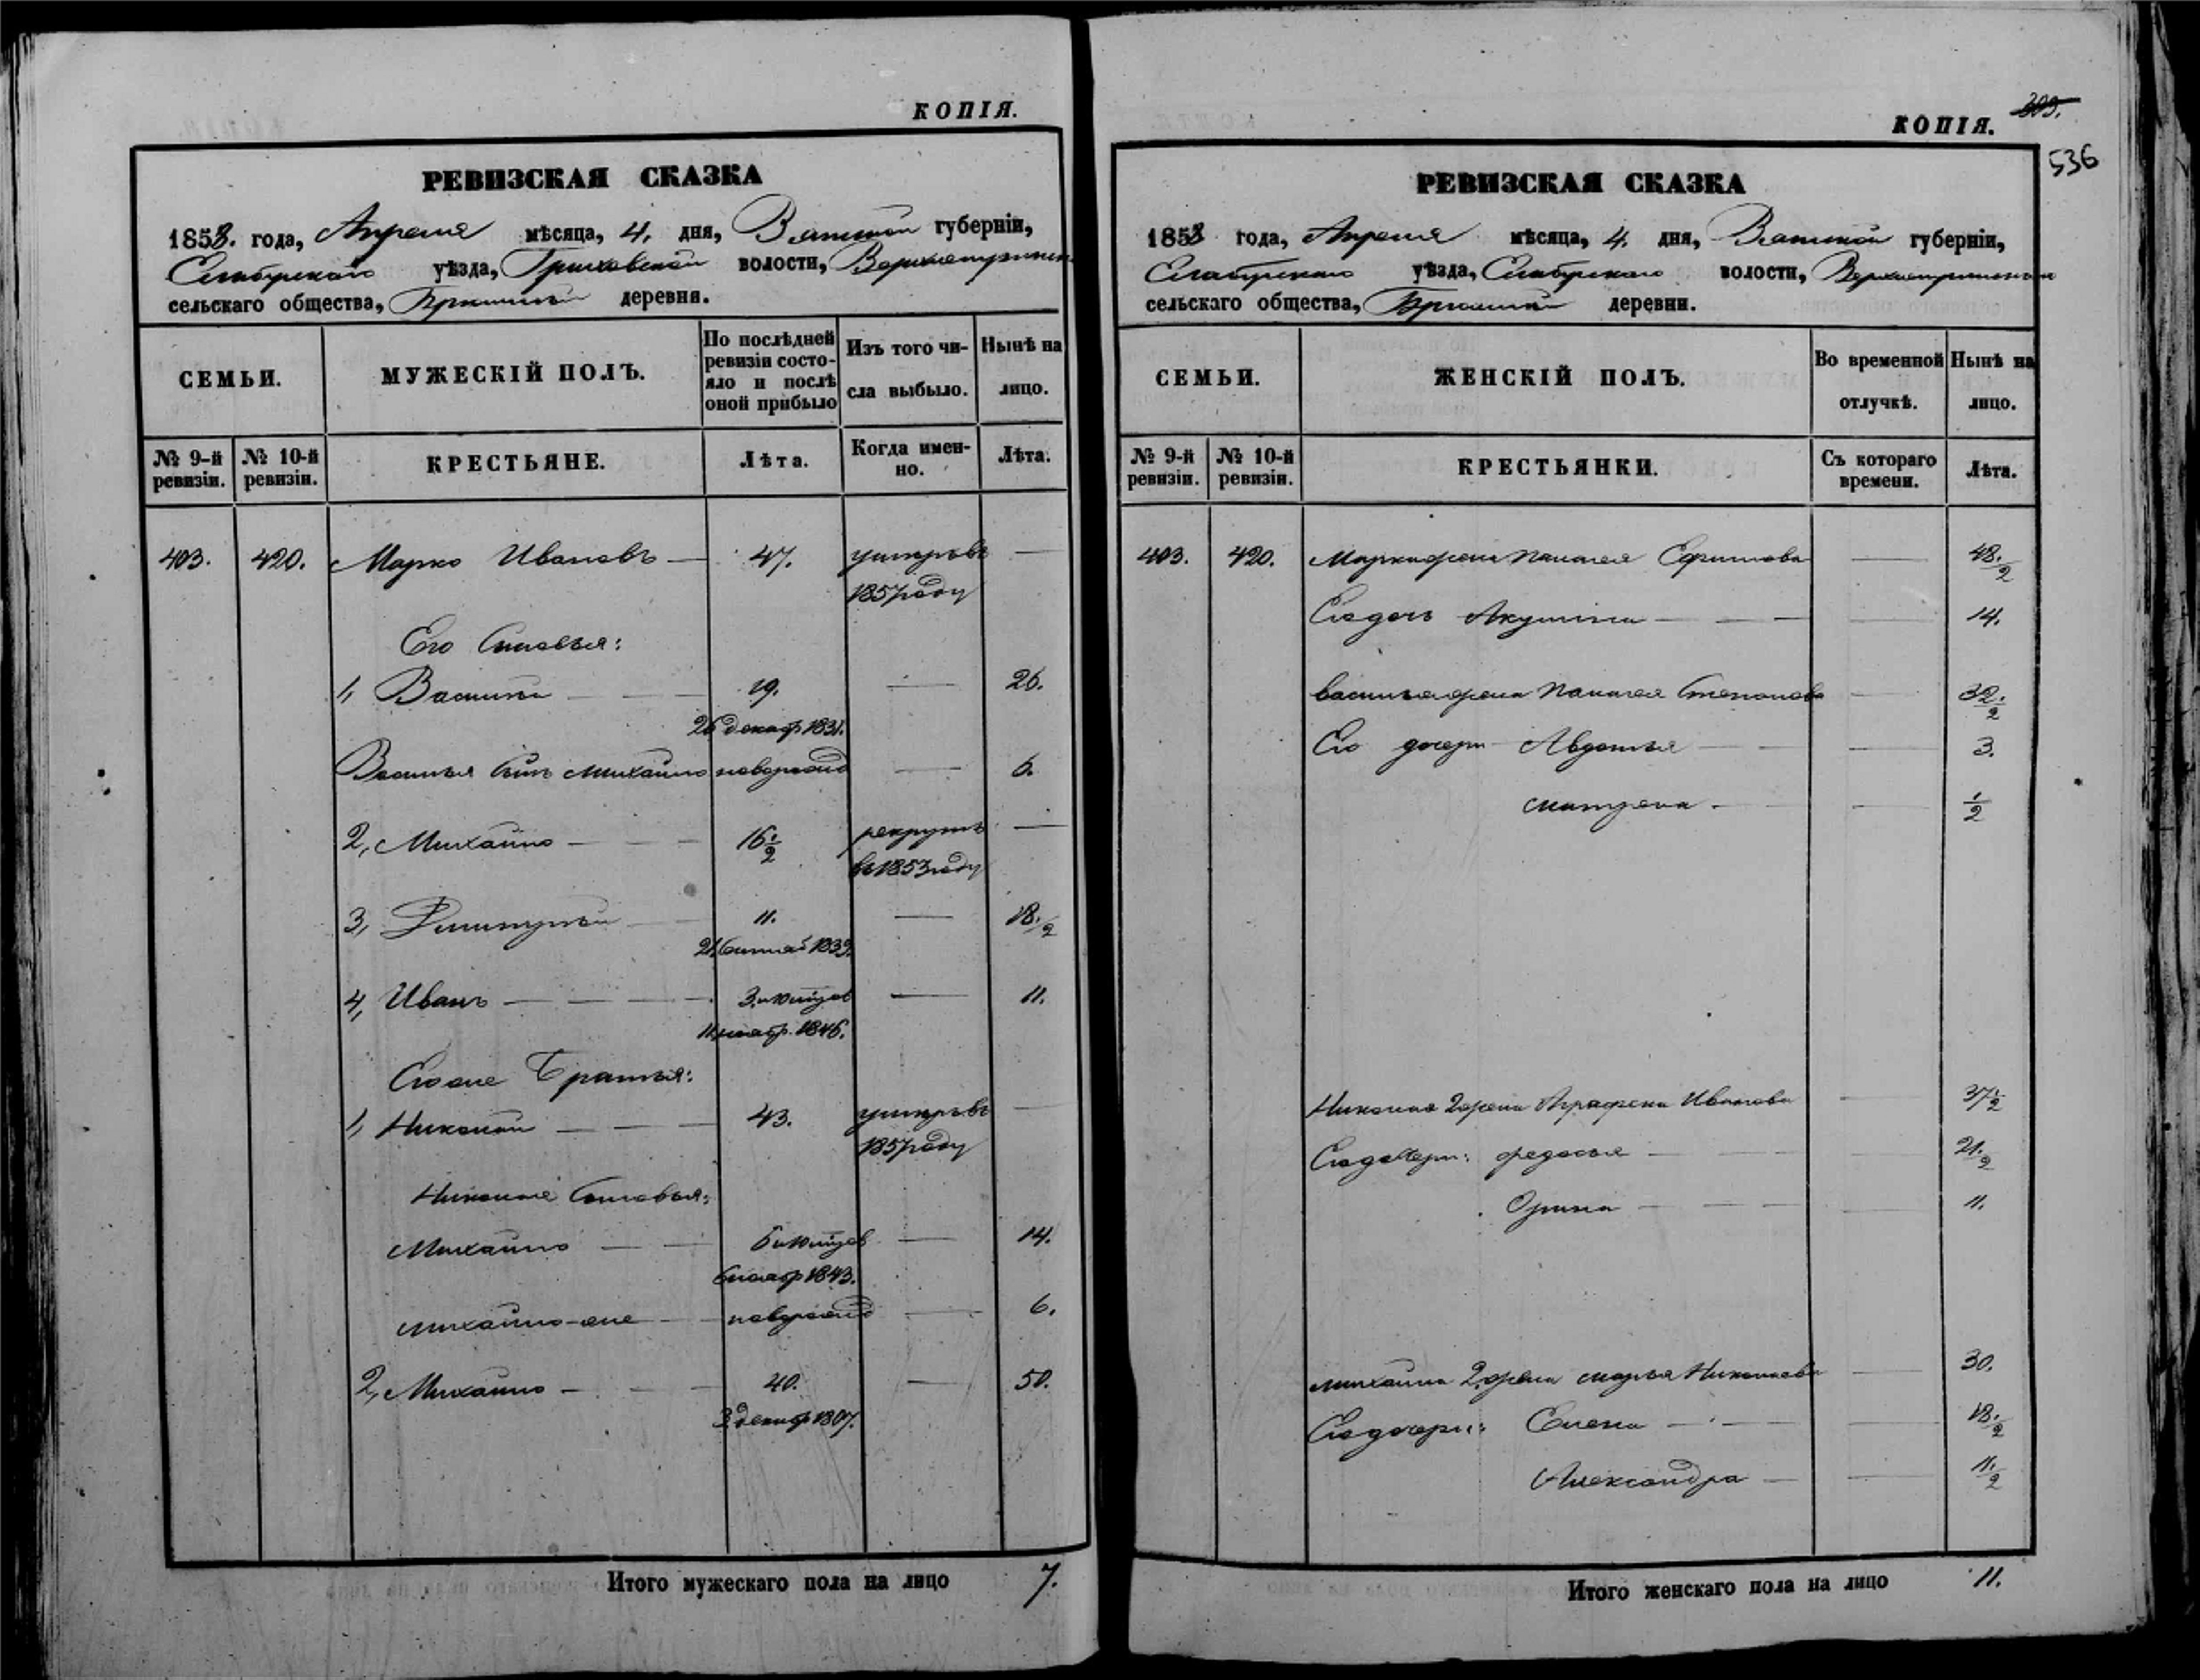 КОПІЯ.
РЕВИЗСКАЯ СКАЗКА
1858. года, Апреля мѣсяца, 4. дня, Вятской губерніи,
Елабужскаго уѣзда, волости,
сельскаго общества, деревня.
СЕМЬИ.
МУЖЕСКІЙ ПОЛЪ.
По послѣдней ревизіи состояло и послѣ оной прибыло
Изъ того числа выбыло.
Нынѣ на лицо.
№ 9-й ревизіи.
№ 10-й ревизіи.
КРЕСТЬЯНЕ.
Лѣта.
Когда именно.
Лѣта.
403. 420. Марко Ивановъ 47. умеръ въ
1857 году
Его Сыновья:
1, Василій 19. 26.
26 декабр 1831.
Василья сынъ Михайло новорожд 6.
2, Михайло 16 1/2 рекрутъ
въ 1853 году
3, Дмитрій 11. 18 1/2
1839.
4, Иванъ 3. 11.
11 ноябр. 1846.
Его же Братья:
1, Николай 43. умеръ въ
1857 году
Николая Сыновья:
Михайло 6 14.
6 ноябр 1843.
Михайло-же новорожд 6.
2, Михайло 40. 50.
3 декабр 1807.
Итого мужескаго пола на лицо 7.
КОПІЯ.
309.
536
РЕВИЗСКАЯ СКАЗКА
1858 года, Апреля мѣсяца, 4. дня, Вятской губерніи,
Елабужскаго уѣзда, волости,
сельскаго общества, деревни.
СЕМЬИ.
ЖЕНСКІЙ ПОЛЪ.
Во временной отлучкѣ.
Нынѣ на лицо.
№ 9-й ревизіи.
№ 10-й ревизіи.
КРЕСТЬЯНКИ.
Съ котораго времени.
Лѣта.
403. 420. Марка жена Палагея Ефимова 48 1/2
Его дочь Акулина 14.
Василья жена Палагея Степанова 32 1/2
Его дочери Авдотья 3.
Матрена. 1/2
Николая 2 жена Аграфена Иванова 37 1/2
Его дочери: Федосья 21 1/2
Орина 11.
Михайла 2 жена Марья Николаева 30.
Его дочери: Елена 18 1/2
Александра 11 1/2
Итого женскаго пола на лицо 11.